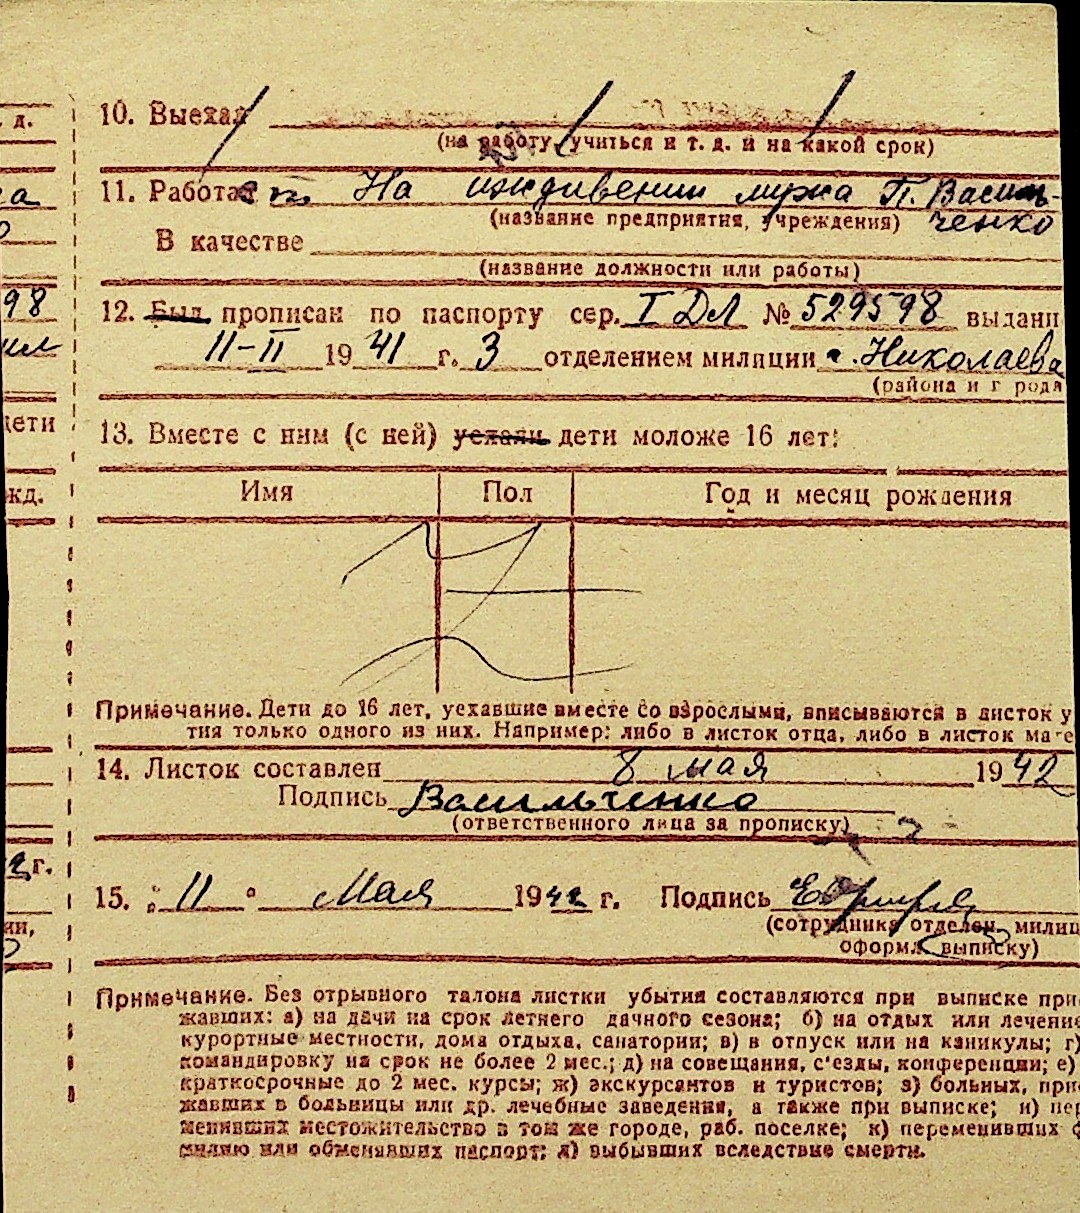 . д.
10. Выехал
(на работу, учиться и т. д. и на какой срок)
11. Работает На иждивении мужа П. Василь-
(название предприятия, учреждения) ченко
В качестве
(название должности или работы)
98
12. Был прописан по паспорту сер. I ДЛ № 529598 выдани
11-II 1941 г. 3 отделением милиции г. Николаева
(района и г рода
дети
13. Вместе с ним (с ней) уехали дети моложе 16 лет:
жд.
Имя Пол Год и месяц рождения
Примечание. Дети до 16 лет, уехавшие вместе со взрослыми, вписываются в листок у
тия только одного из них. Например: либо в листок отца, либо в листок мате
14. Листок составлен 8 мая 1942
Подпись Васильченко
(ответственного лица за прописку)
г.
15. „ 11 " Мая 1942 г. Подпись
(сотрудника отделен. милиц
оформл. выписку)
ии,
Примечание. Без отрывного талона листки убытия составляются при выписке прие
жавших: а) на дачи на срок летнего дачного сезона; б) на отдых или лечение
курортные местности, дома отдыха, санатории; в) в отпуск или на каникулы; г)
командировку на срок не более 2 мес.; д) на совещания, с'езды, конференции; е)
краткосрочные до 2 мес. курсы; ж) экскурсантов и туристов; з) больных, прие
жавших в больницы или др. лечебные заведения, а также при выписке; и) пер
менивших местожительство в том же городе, раб. поселке; к) переменивших ф
милию или обменявших паспорт; л) выбывших вследствие смерти.